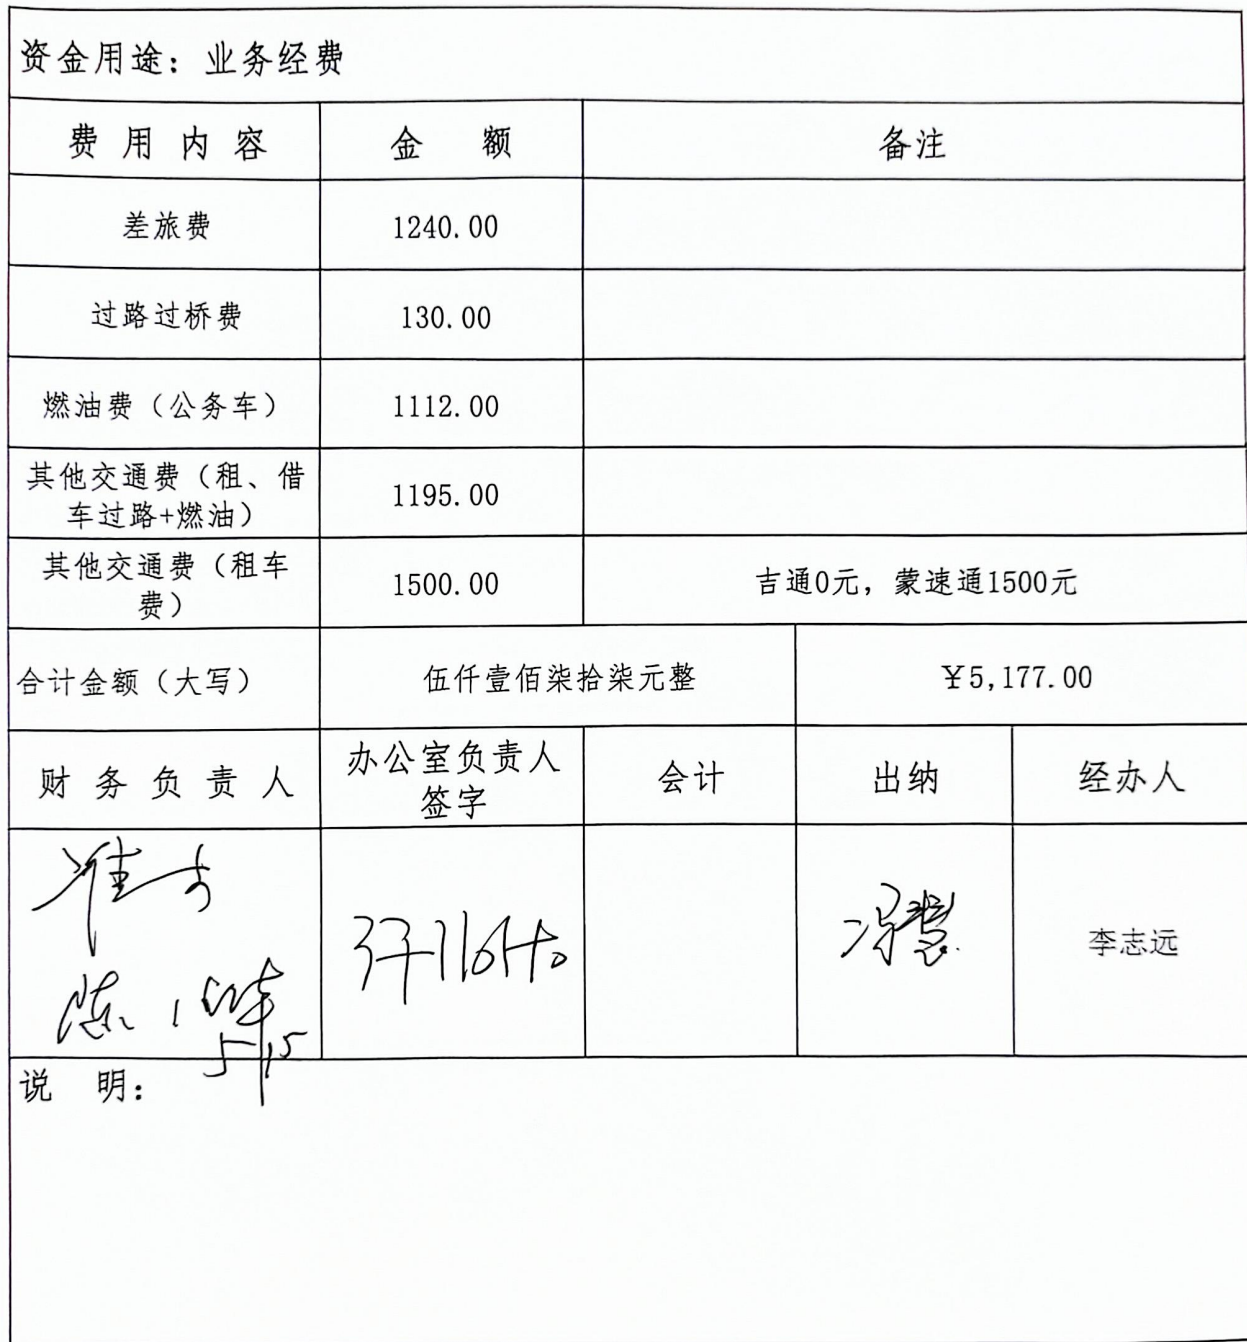 资金用途：业务经费
费用内容 金额 备注
差旅费 1240.00
过路过桥费 130.00
燃油费（公务车） 1112.00
其他交通费（租、借
车过路+燃油） 1195.00
其他交通费（租车
费） 1500.00 吉通0元，蒙速通1500元
合计金额（大写） 伍仟壹佰柒拾柒元整 ¥5,177.00
财务负责人 办公室负责人
签字 会计 出纳 经办人
冯慧 李志远
5/15
说 明：